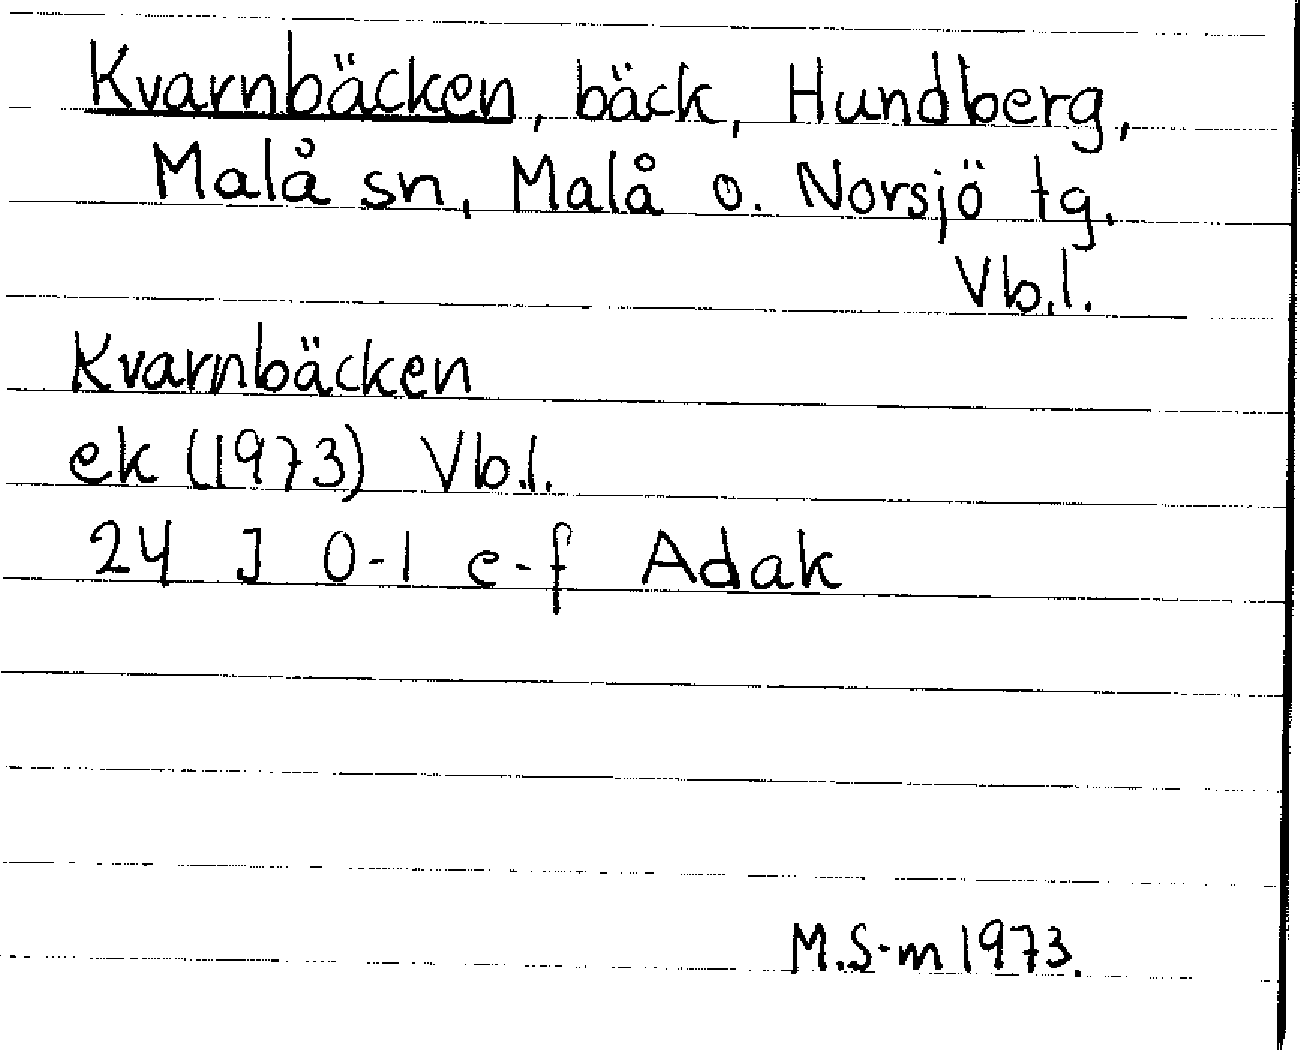 Kvarnbäcken, bäck, Hundberg,
Malå sn, Malå o. Norsjö tg.
Vb.l.
Kvarnbäcken
ek (1973) Vb.l.
24 J 0-1 e-f Adak
M.S-m 1973.